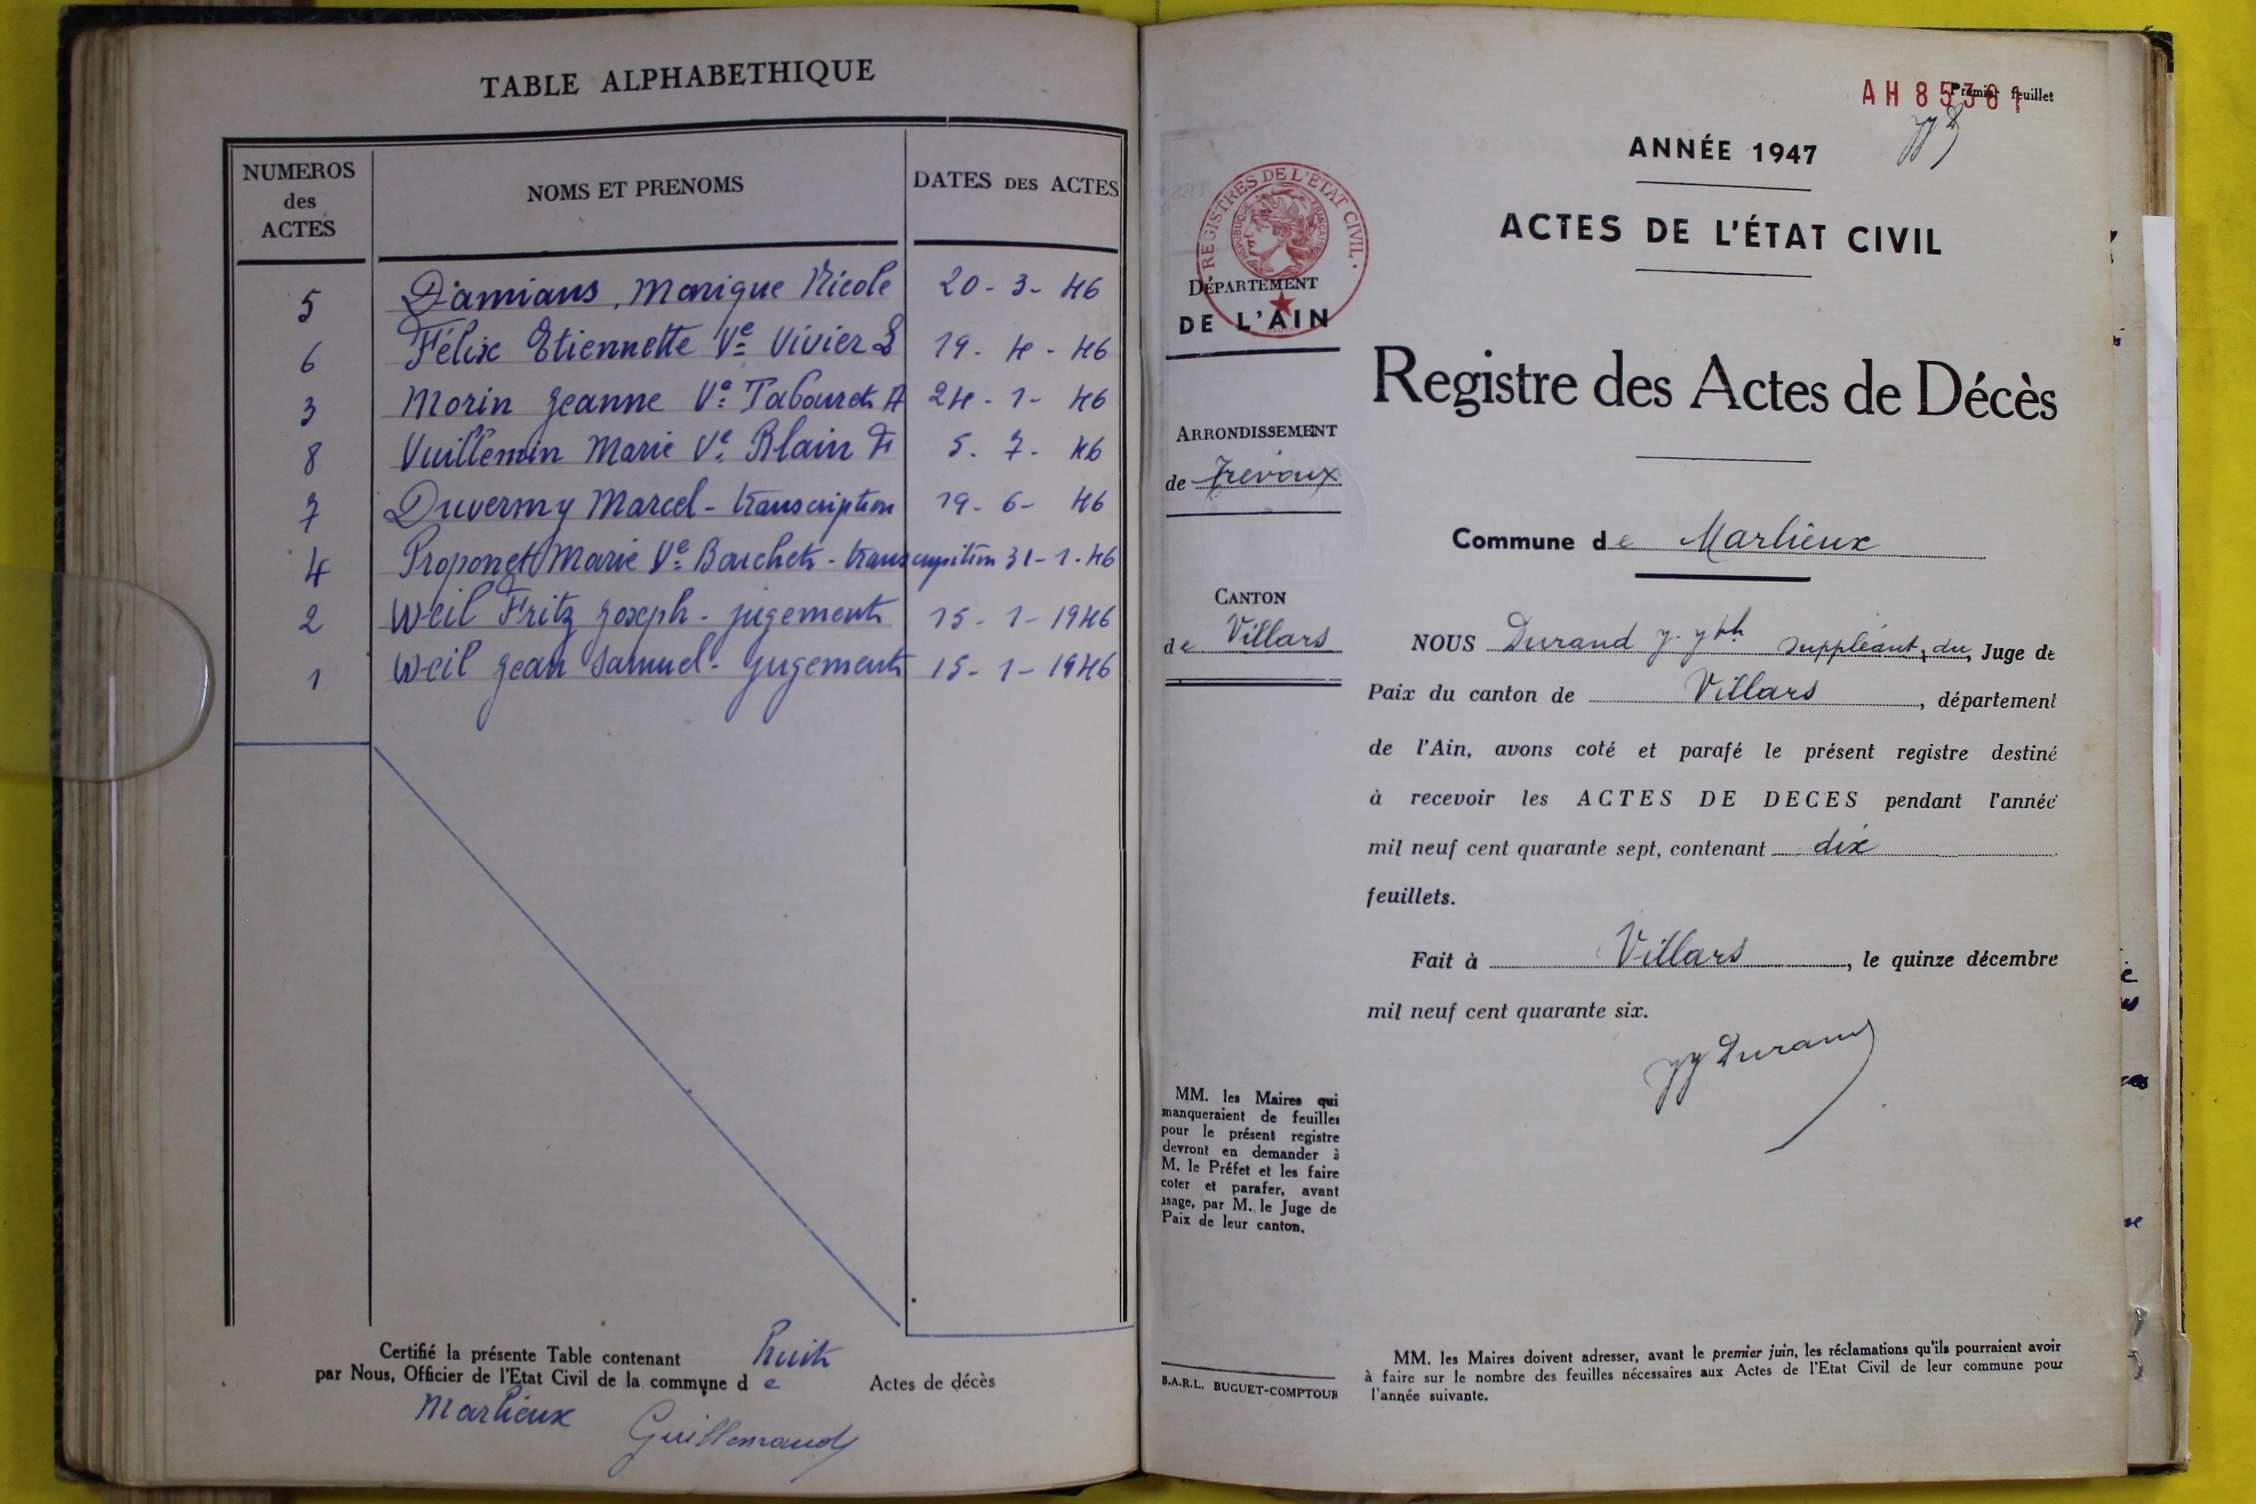 TABLE ALPHABETHIQUE
NUMEROS des ACTES
NOMS ET PRENOMS
DATES DES ACTES
5 Damians, Monique Nicole 20 - 3 - 46
6 Félix Etiennette Ve Vivier L 19 - 4 - 46
3 Morin Jeanne Ve Tabouret A 24 - 1 - 46
8 Vuillemin Marie Ve Blain F 5 . 7 - 46
7 Duvermy Marcel - transcription 19 - 6 - 46
4 Proponet Marie Ve Bouchet - transcription 31 - 1 - 46
2 Weil Fritz Joseph - jugement 15 - 1 - 1946
1 Weil Jean Samuel - jugement 15 - 1 - 1946
Certifié la présente Table contenant huit
par Nous, Officier de l'Etat Civil de la commune de Actes de décès
Marlieux
Guillemaud
AH 85361
Premier feuillet
ANNÉE 1947
ACTES DE L'ÉTAT CIVIL
REGISTRES DE L'ÉTAT CIVIL
RÉPUBLIQUE FRANÇAISE
DÉPARTEMENT
DE L'AIN
Registre des Actes de Décès
ARRONDISSEMENT
de Trévoux
Commune de Marlieux
CANTON
de Villars
NOUS Durand suppléant du Juge de
Paix du canton de Villars, département
de l'Ain, avons coté et parafé le présent registre destiné
à recevoir les ACTES DE DECES pendant l'année
mil neuf cent quarante sept, contenant dix
feuillets.
Fait à Villars, le quinze décembre
mil neuf cent quarante six.
JJ Durand
MM. les Maires qui
manqueraient de feuilles
pour le présent registre
devront en demander à
M. le Préfet et les faire
coter et parafer, avant
usage, par M. le Juge de
Paix de leur canton.
S.A.R.L. BUGUET-COMPTOUR
MM. les Maires doivent adresser, avant le premier juin, les réclamations qu'ils pourraient avoir
à faire sur le nombre des feuilles nécessaires aux Actes de l'Etat Civil de leur commune pour
l'année suivante.